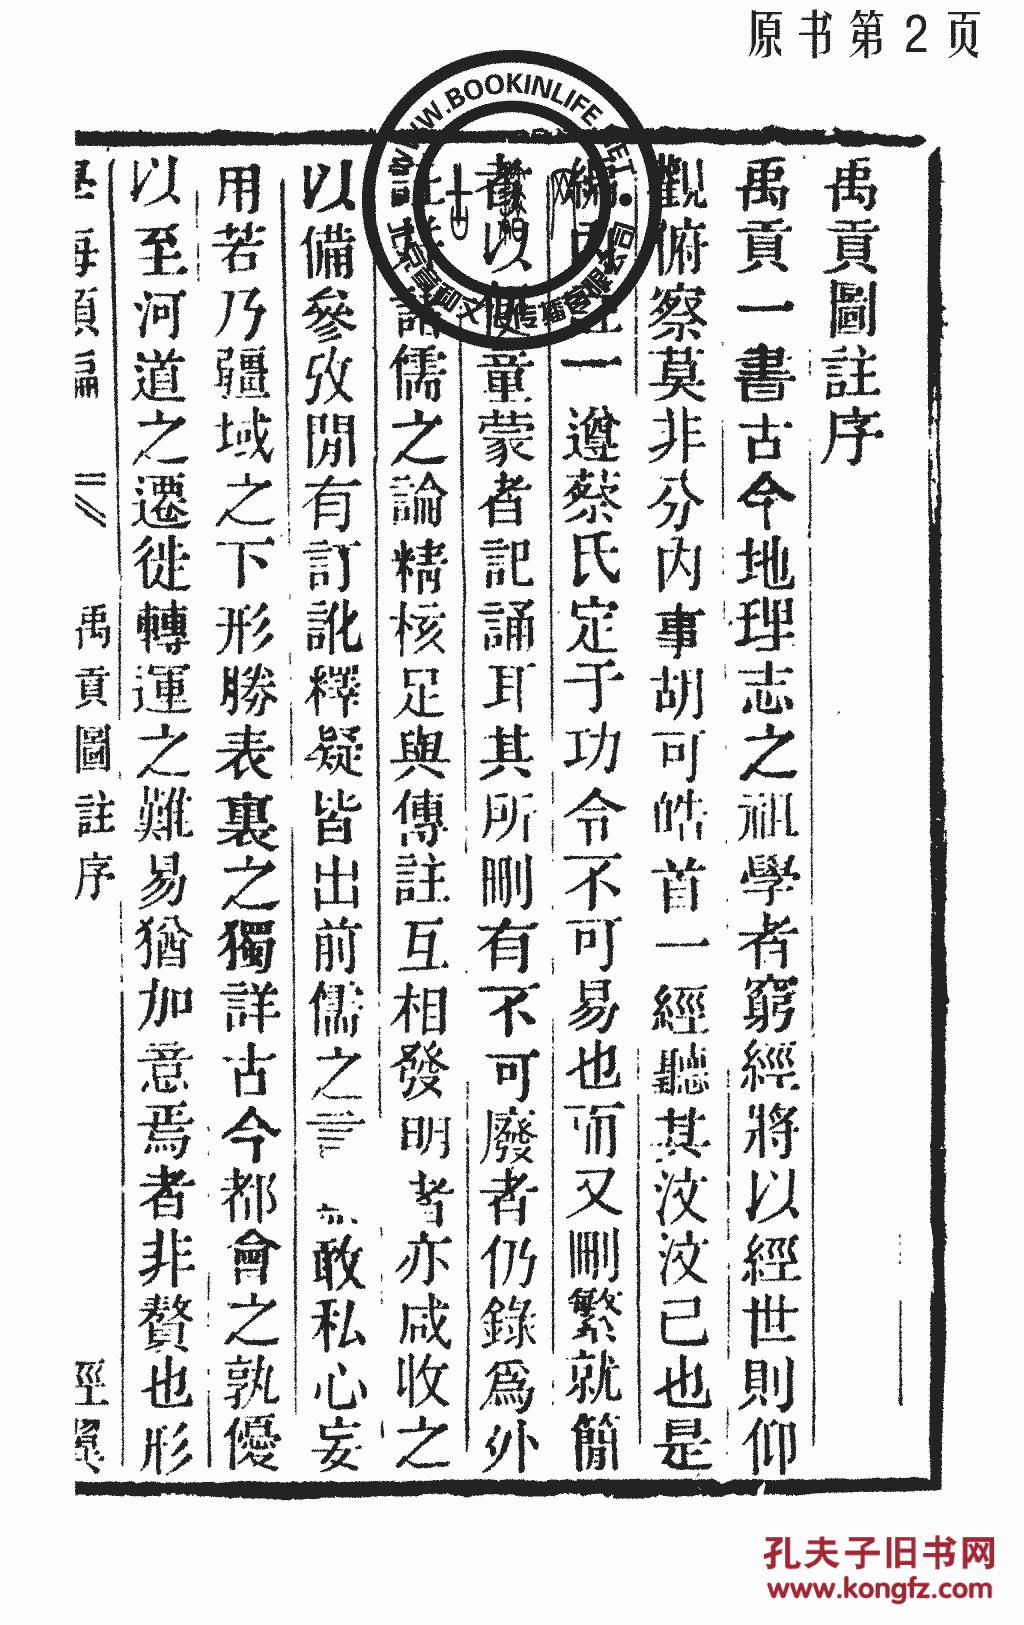 原书第2页
禹貢圖註序
禹貢一書古今地理志之祖學者窮經將以經世則仰
觀俯察莫非分内事胡可皓首一經聽其汶汶已也是
編 一遵蔡氏定于功令不可易也而又刪繁就簡
者以便童蒙者記誦耳其所刪有不可廢者仍錄爲外
註諸儒之論精核足與傳註互相發明者亦咸收之
以備參攷閒有訂訛釋疑皆出前儒之言 敢私心妄
用若乃疆域之下形勝表裏之獨詳古今都會之孰優
以至河道之遷徙轉運之難易猶加意焉者非贅也形
禹貢圖註序
WWW.BOOKINLIFE.NET
孔夫子旧书网
www.kongfz.com